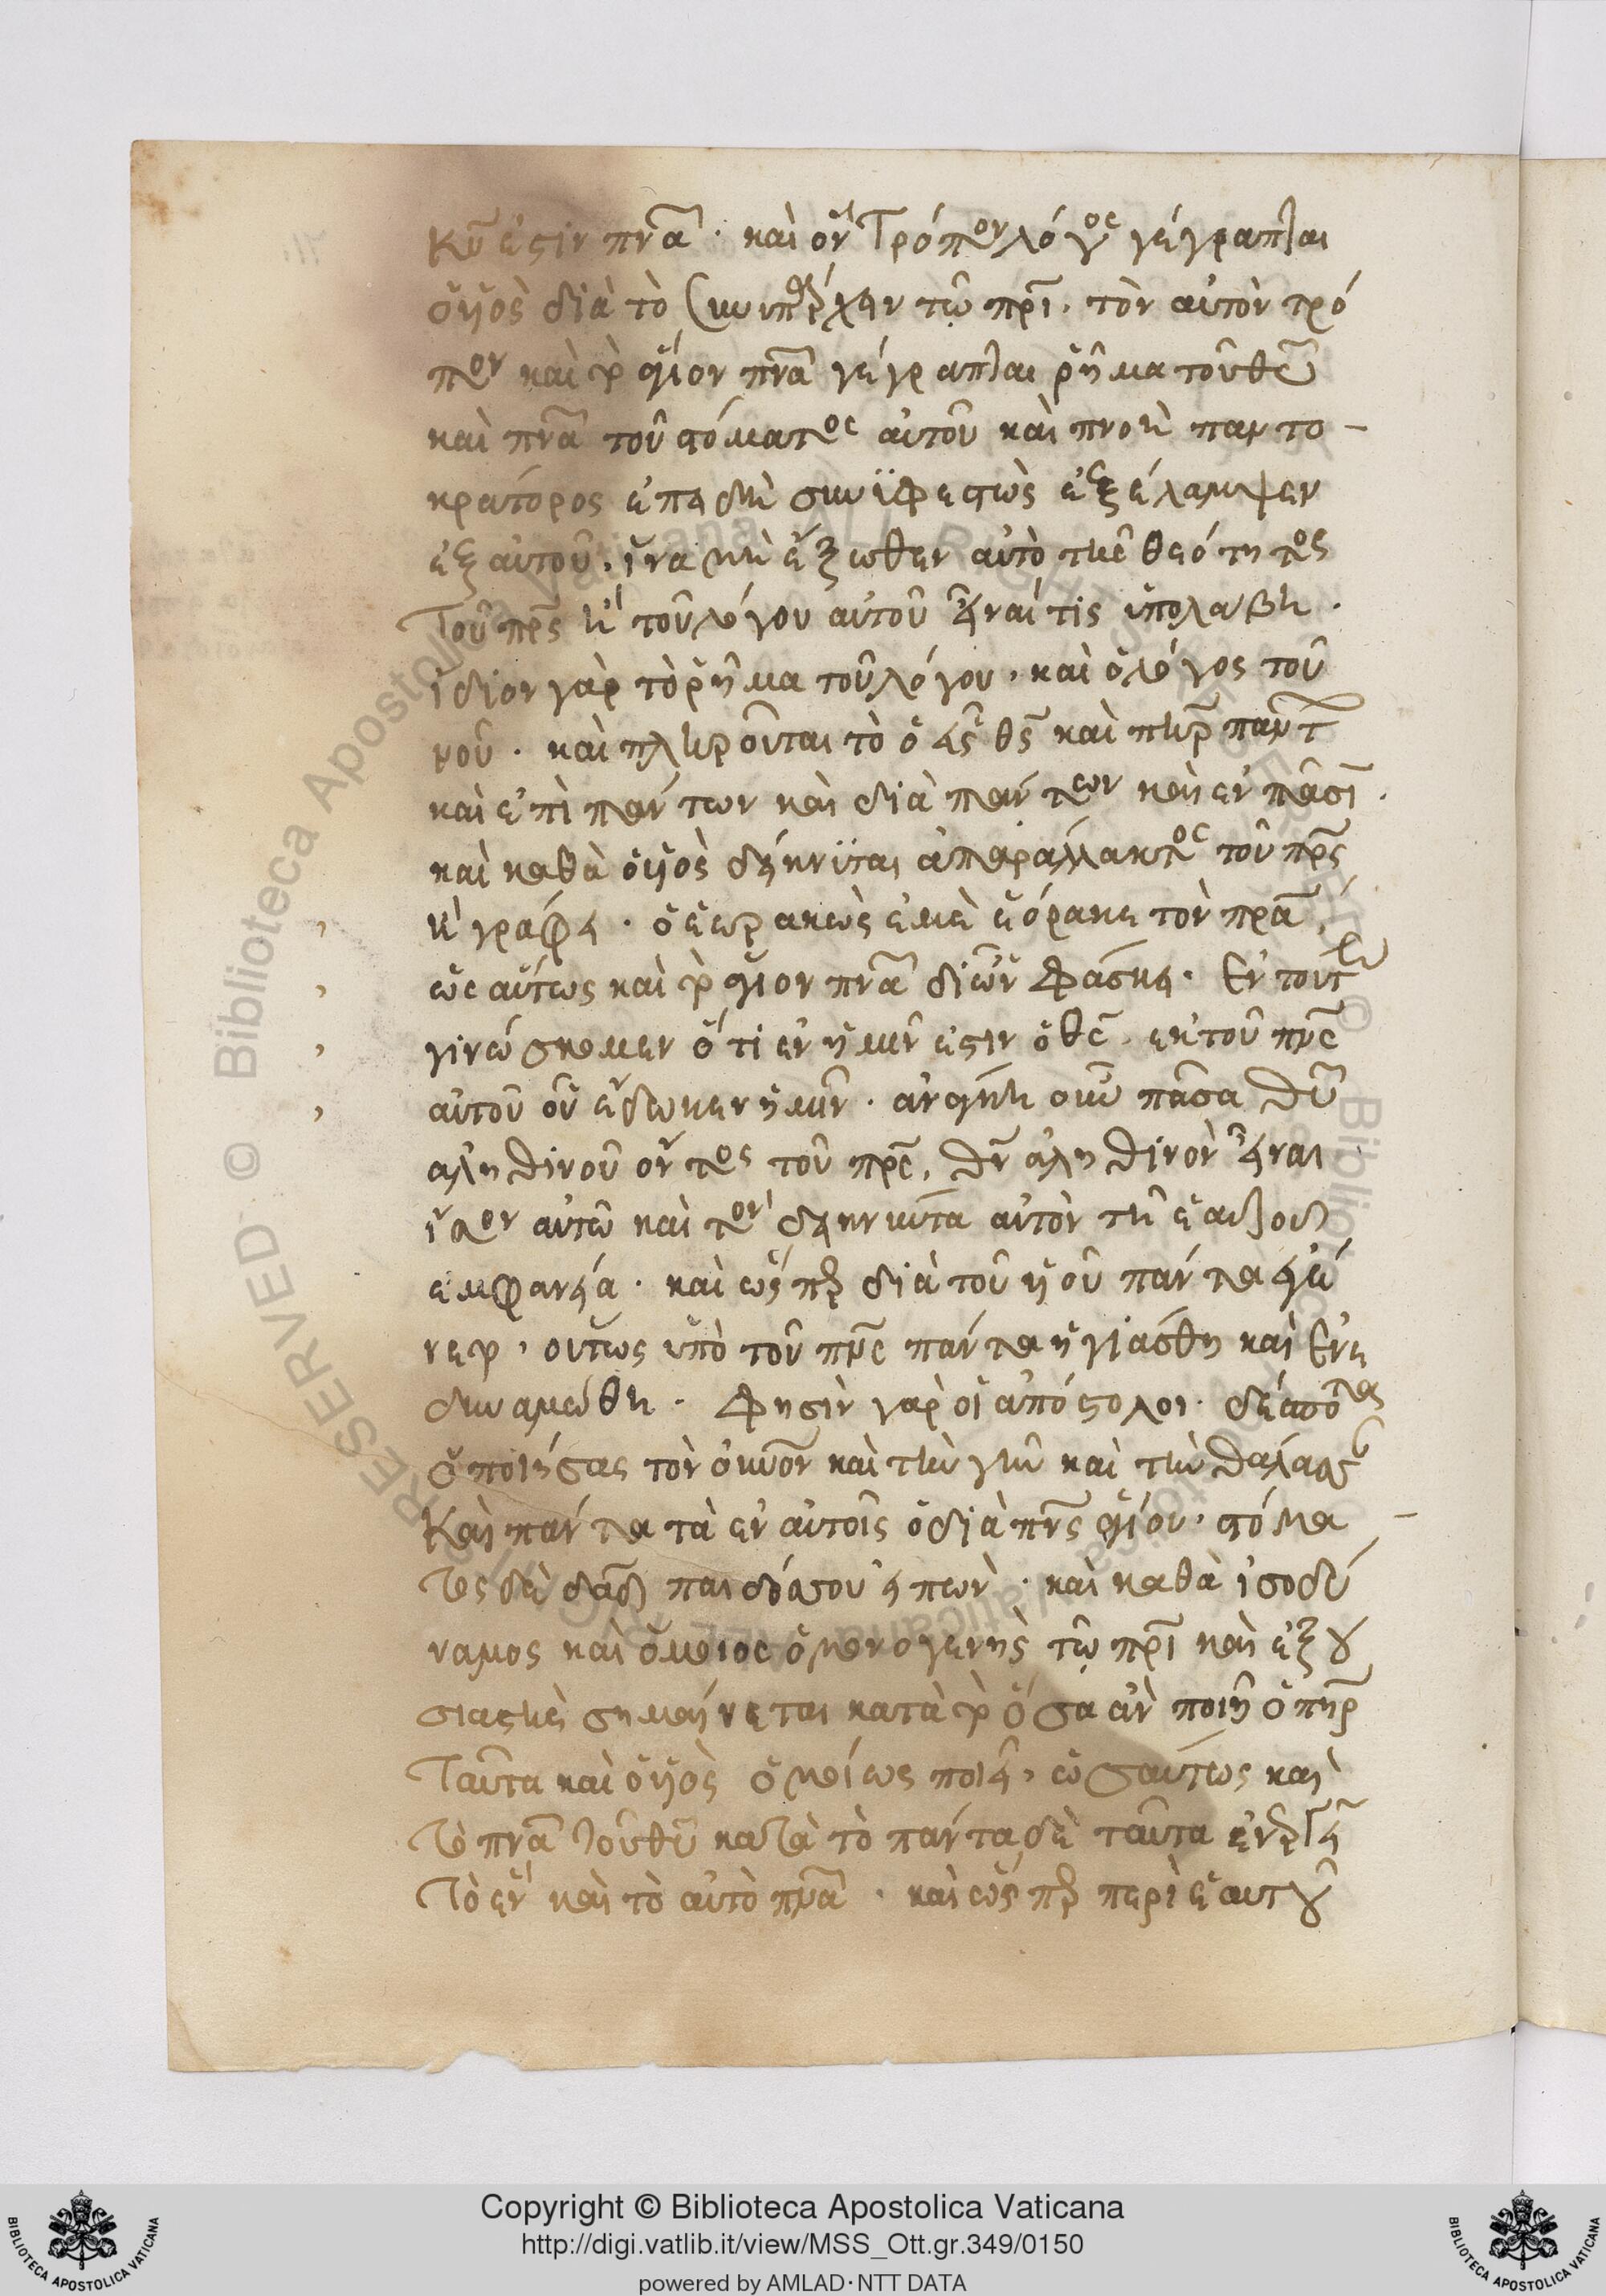 κυ ἐστιν πνα · καὶ ὃν τρόπον λόγος γέγραπται
ὁ υἱὸς διὰ τὸ συνυπάρχειν τῷ πρι · τὸν αὐτὸν τρό
πον καὶ τὸ ἅγιον πνα γέγραπται ῥῆμα τοῦ θυ
καὶ πνα τοῦ στόματος αὐτοῦ καὶ πνοὴ παντο –
κράτορος ἐπειδὴ συνϋφεστὼς ἐξέλαμψεν
ἐξ αὐτοῦ · ἵνα μὴ ἔξωθεν αὐτὸ τῆς θεότητος
τοῦ πρς ἢ τοῦ λόγου αὐτοῦ εἶναί τις ὑπολάβη ·
ἴδιον γὰρ τὸ ῥῆμα τοῦ λόγου · καὶ ὁ λόγος τοῦ
νοῦ · καὶ πληροῦται τὸ ὁ εἷς θς καὶ πηρ πάντ
καὶ ἐπὶ πάντων καὶ διὰ πάντων καὶ ἐν πᾶσι ·
καὶ καθὰ ὁ υἱὸς δείκνϋται ἀπαράλλακτος τοῦ πρς
ἢ γράφει · ὁ ἑωρακὼς ἐμὲ ἑόρακε τὸν πρα ,
ὡς αὕτως καὶ τὸ ἅγιον πνα δι ὧν φάσκει · Ἐν τούτω
γινώσκομεν ὅτι ἐν ἡμῖν ἐστιν ὁ θς · ἐκ τοῦ πνς
αὐτοῦ οὗ ἔδωκεν ἡμῖν · ἀνάγκη οὖν πᾶσα θυ
αληθινοῦ ὄντος τοῦ πρς , θν ἀληθινὸν εἶναι
ἴσον αὐτῶ καὶ τὸν δεικνῦντα αὐτὸν τῆ ἑαυτοῦ
ἐμφανεία · καὶ ὥσπερ διὰ τοῦ υἱοῦ πάντα ἐγέ
νετο · οὕτως ὑπὸ τοῦ πνς πάντα ἡγιάσθη καὶ ἐνε
δυναμώθη · φησὶν γὰρ οἱ ἀπόστολοι · δέσποτας
ὁ ποιήσας τὸν οὐνον καὶ τὴν γῆν καὶ τὴν θάλασσ
Καὶ πάντα τὰ ἐν αὐτοῖς ὁ διὰ πνς ἁγίου · στόμα
τος δὲ δαδ παιδός σου εἰπών · καὶ καθὰ ἰσοδύ
ναμος καὶ ὅμοιος ὁ μονογενὴς τῷ πρι καὶ ἐξου
σιαστὴς σημαίνεται κατὰ τὸ ὅσα ἂν ποιῆ ὁ πηρ
ταῦτα καὶ ὁ υἱὸς ὁμοίως ποιεῖ · ὡσαύτως καὶ
τὸ πνα τοῦ θυ κατὰ τὸ πάντα δὲ ταῦτα ἐνεργεῖ
τὸ ἓν καὶ τὸ αὐτὸ πνα · καὶ ὥσπερ περὶ ἑαυτοῦ
Copyright © Biblioteca Apostolica Vaticana
http://digi.vatlib.it/view/MSS_Ott.gr.349/0150
powered by AMLAD·NTT DATA